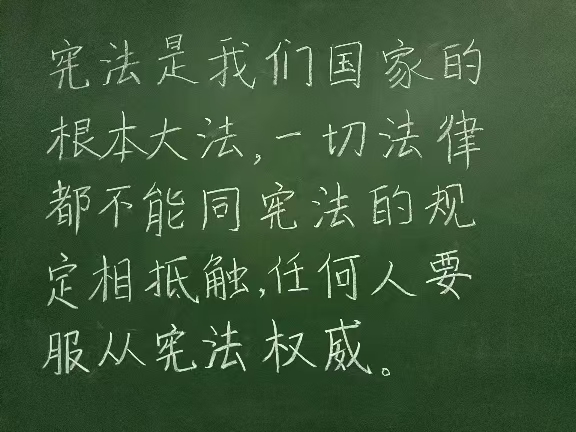 宪法是我们国家的
根本大法,一切法律
都不能同宪法的规
定相抵触,任何人要
服从宪法权威。